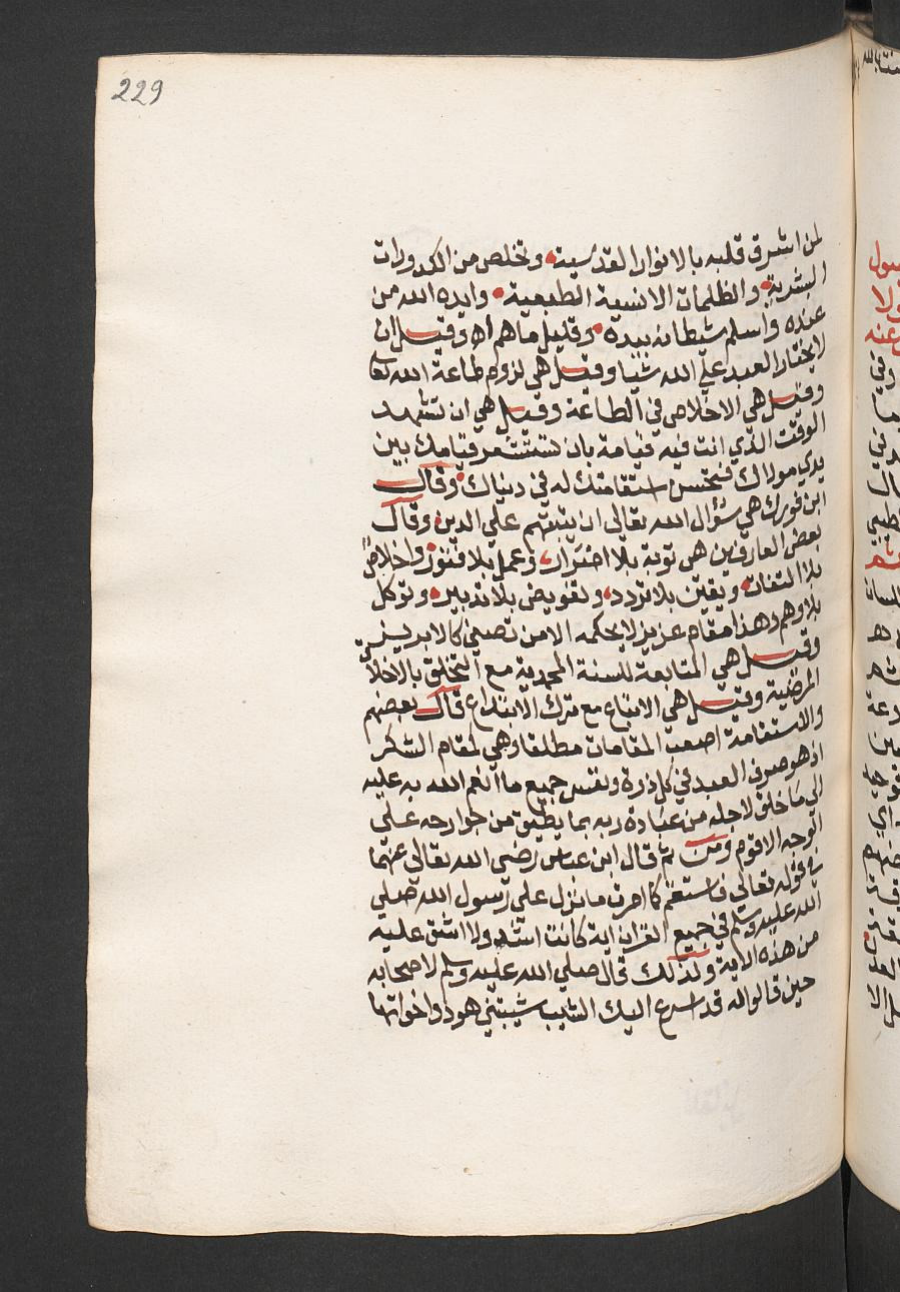 229
لمن اشرق قلبه بالانوار القدسية وتخلص من الكدورات
البشرية والظلمات الانسية الطبعية وايده الله من
عنده واسلم شيطانه بيده وقليل ما هم اه وقيل ان
لا يختار العبد علي الله شيئا وقيل هي لزوم طاعة الله تعا
وقيل هي الاخلاص في الطاعة وقيل هي ان تشهد
الوقت الذي انت فيه قيامة بان تستشعر قيامك بين
يدي مولاك فتحسن استقامتك له في دنياك وقال
ابن فورك هي سؤال الله تعالى ان يثبتهم علي الدين وقال
بعض العارفين هي توبة بلا اصرار وعمل بلا فتور واخلاص
بلا التفات ويقين بلا تردد وتفويض بلا تدبير وتوكل
بلا وهم وهذا مقام عزيز لا يحكمه الا من تصفي كالابريز
وقيل هي المتابعة للسنة المحمدية مع التخلق بالاخلاق
المرضية وقيل هي الاتباع مع ترك الابتداع قال بعضهم
والاستقامة اصعب المقامات مطلقا وهي كمقام الشكر
اذ هو صرف العبد في كل ذرة ونفس جميع ما انعم الله به عليه
الى ما خلق لاجله من عبادة ربه بما يطيق من جوارحه علي
الوجه الاقوم ومن ثم قال ابن عباس رضى الله تعالى عنهما
في قوله تعالي فاستقم كما امرت ما نزل على رسول الله صلي
الله عليه وسلم في جميع القران اية كانت اشد ولا اشق عليه
من هذه الاية ولذلك قال صلي الله عليه وسلم لاصحابه
حين قالوا له قد اسرع اليك الشيب شيبتني هود واخواتها